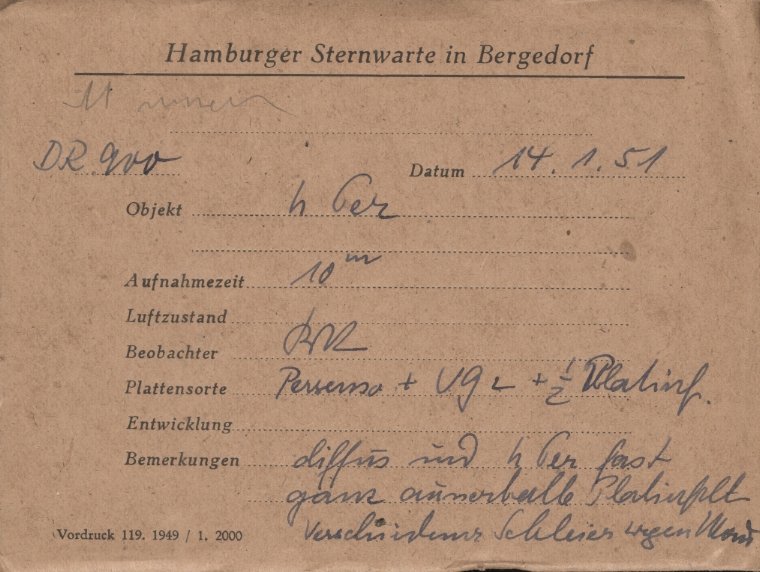 Hamburger Sternwarte in Bergedorf
DR 900
Datum 14. 1. 51
Objekt h Per
Aufnahmezeit 10 m
Luftzustand
Beobachter
Plattensorte + UG 2 + 1/2 Platinf.
Entwicklung
Bemerkungen diffus und h Per fast
ganz ausserhalb Platinfilt
Schleier wegen Mond
Vordruck 119. 1949 / 1. 2000